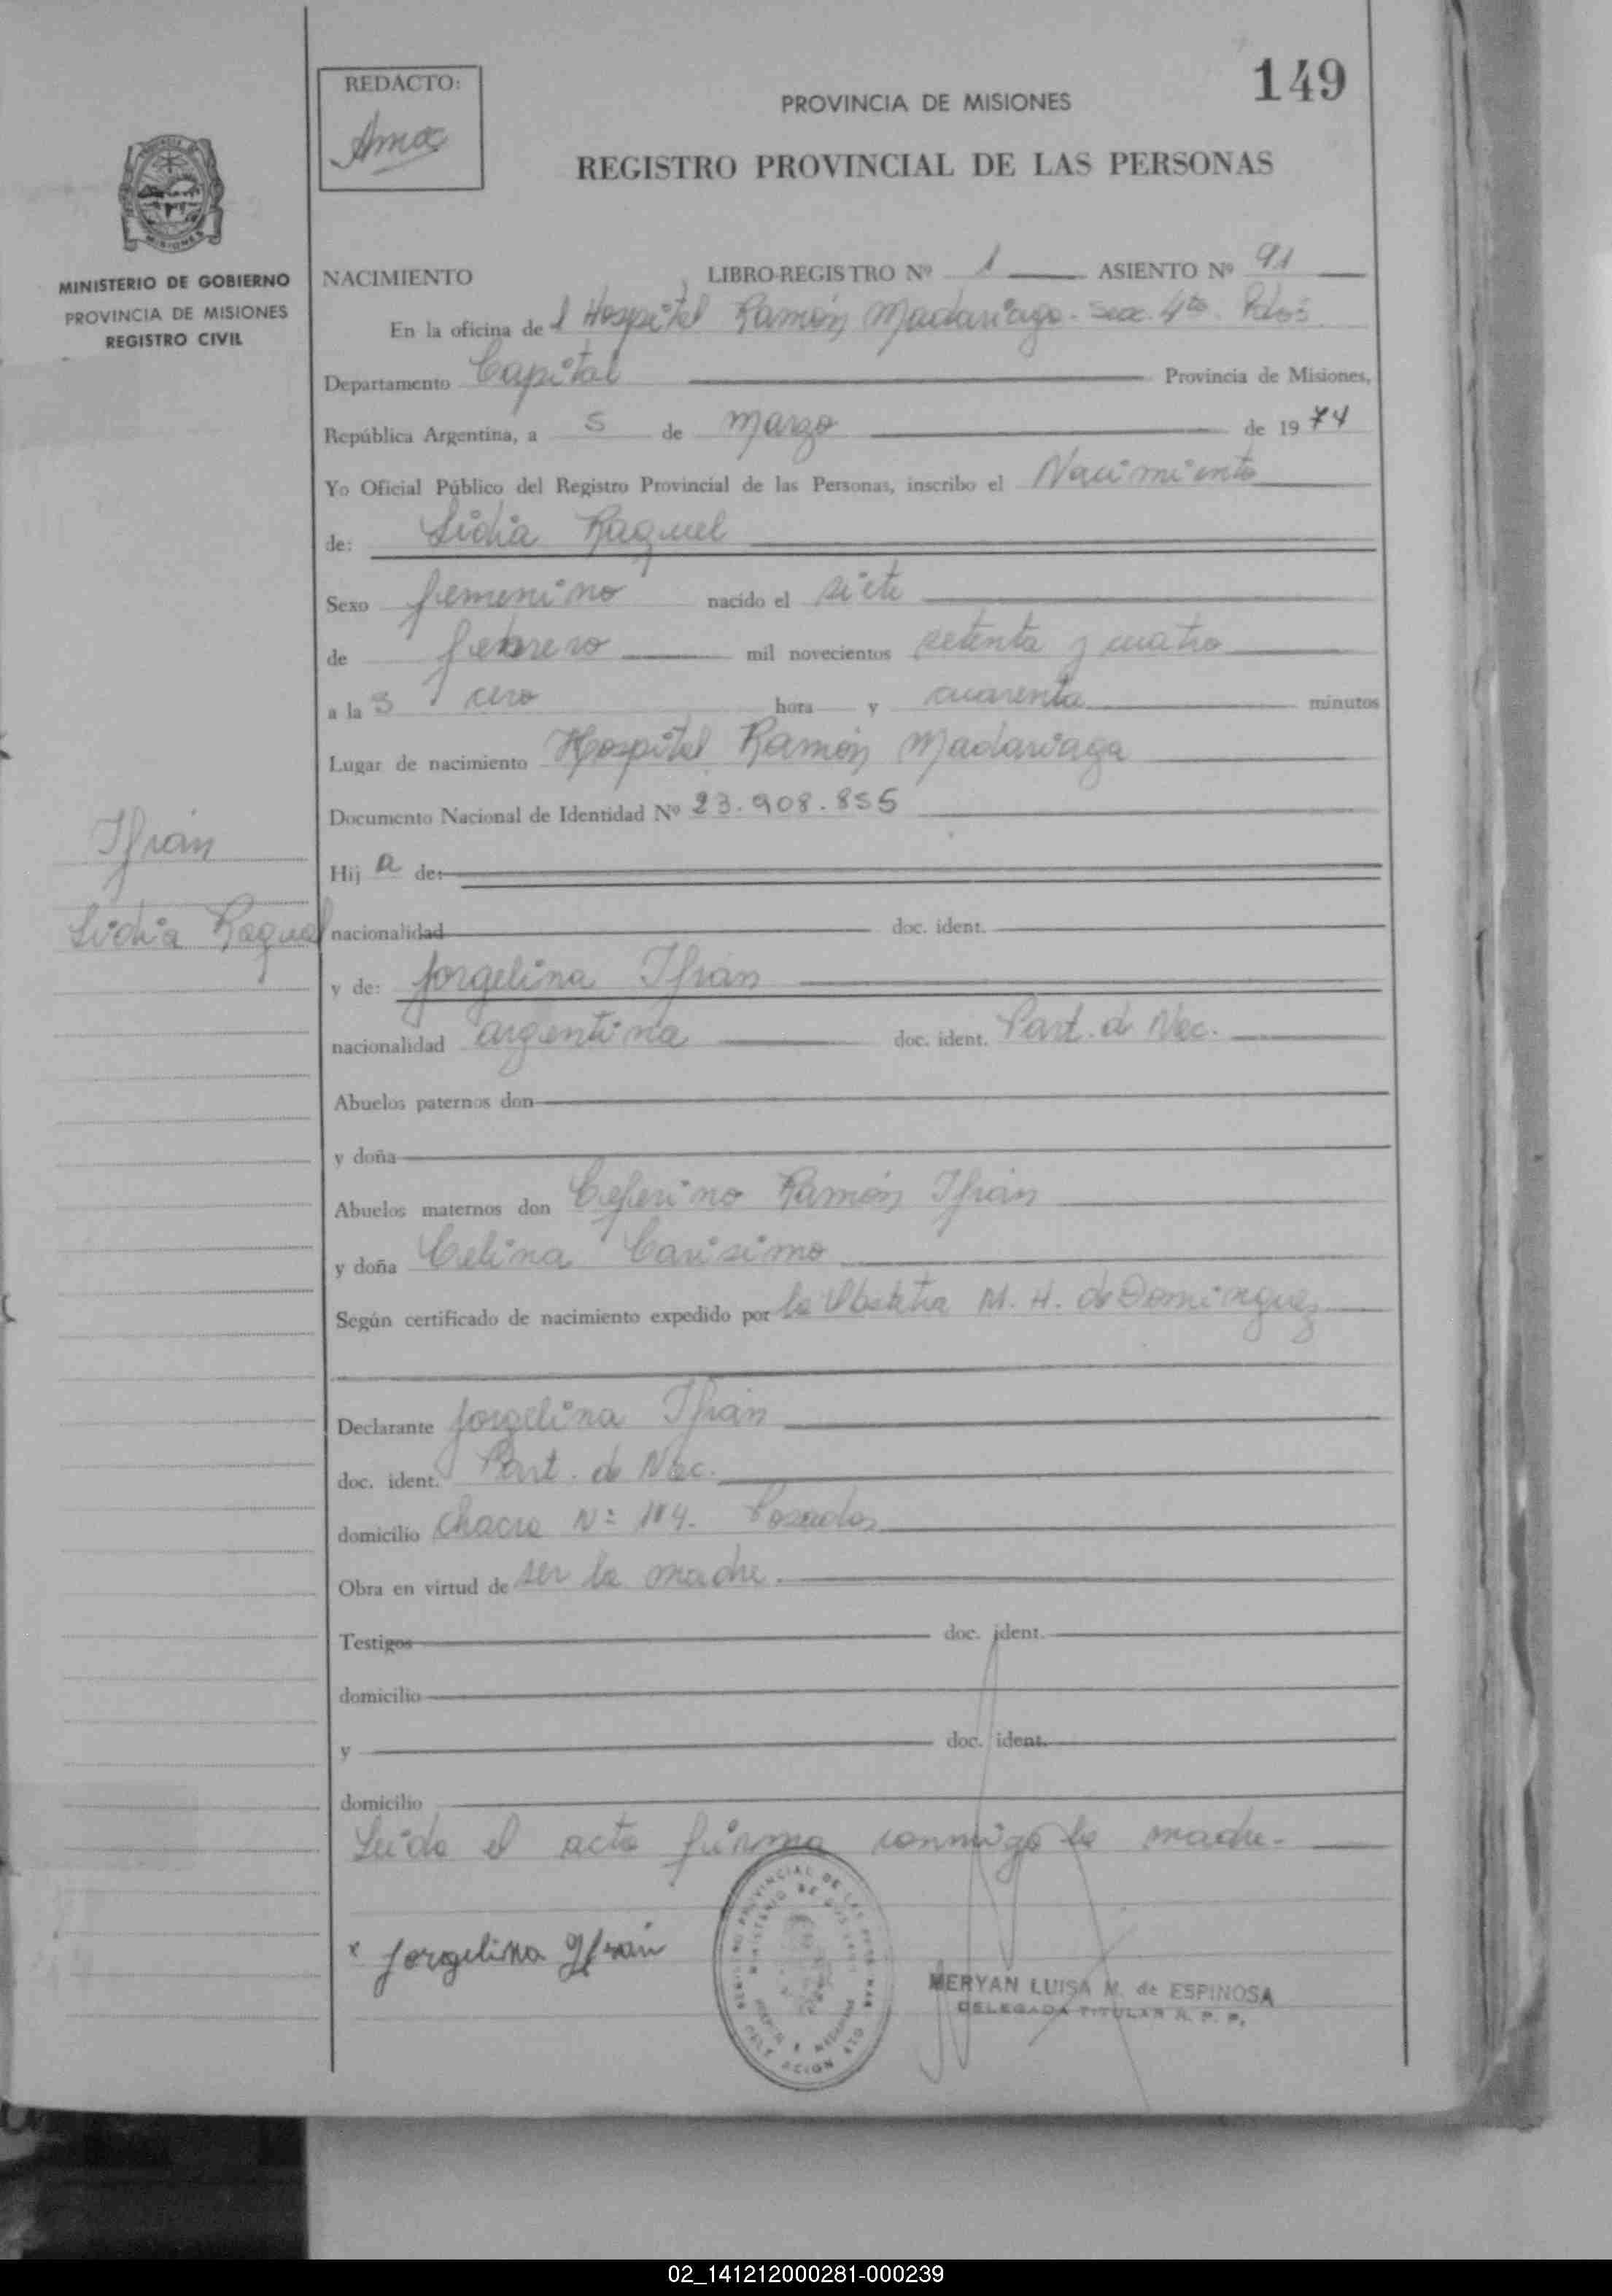 149
REDACTO:
PROVINCIA DE MISIONES
REGISTRO PROVINCIAL DE LAS PERSONAS
MISIONES
MINISTERIO DE GOBIERNO
PROVINCIA DE MISIONES
REGISTRO CIVIL
NACIMIENTO LIBRO-REGISTRO Nº 1 ASIENTO Nº 91
En la oficina del Hospital Ramón Madariaga - Secc. 4ta. Pdas
Departamento Capital Provincia de Misiones,
República Argentina, a 5 de Marzo de 1974
Yo Oficial Público del Registro Provincial de las Personas, inscribo el Nacimiento
de: Lidia Raquel
Sexo femenino nacido el siete
de febrero mil novecientos setenta y cuatro
a las cero hora y cuarenta minutos
Lugar de nacimiento Hospital Ramón Madariaga
Documento Nacional de Identidad Nº 23.908.855
Ifrán
Hija de:
Lidia Raquel
nacionalidad doc. ident.
y de: Jorgelina Ifrán
nacionalidad argentina doc. ident. Part. d Nac.
Abuelos paternos don
y doña
Abuelos maternos don Ceferino Ramón Ifrán
y doña Celina Carisimo
Según certificado de nacimiento expedido por la Obstetra M. H. de Dominguez
Declarante Jorgelina Ifrán
doc. ident. Part. de Nac.
domicilio Chacra Nº 104. Posadas
Obra en virtud de ser la madre.
Testigos doc. ident.
domicilio
y doc. ident.
domicilio
Leida el acta firma conmigo la madre.-
x Jorgelina Ifrán
MERYAN LUISA M. de ESPINOSA
DELEGADA TITULAR R. P. P.
02_141212000281-000239